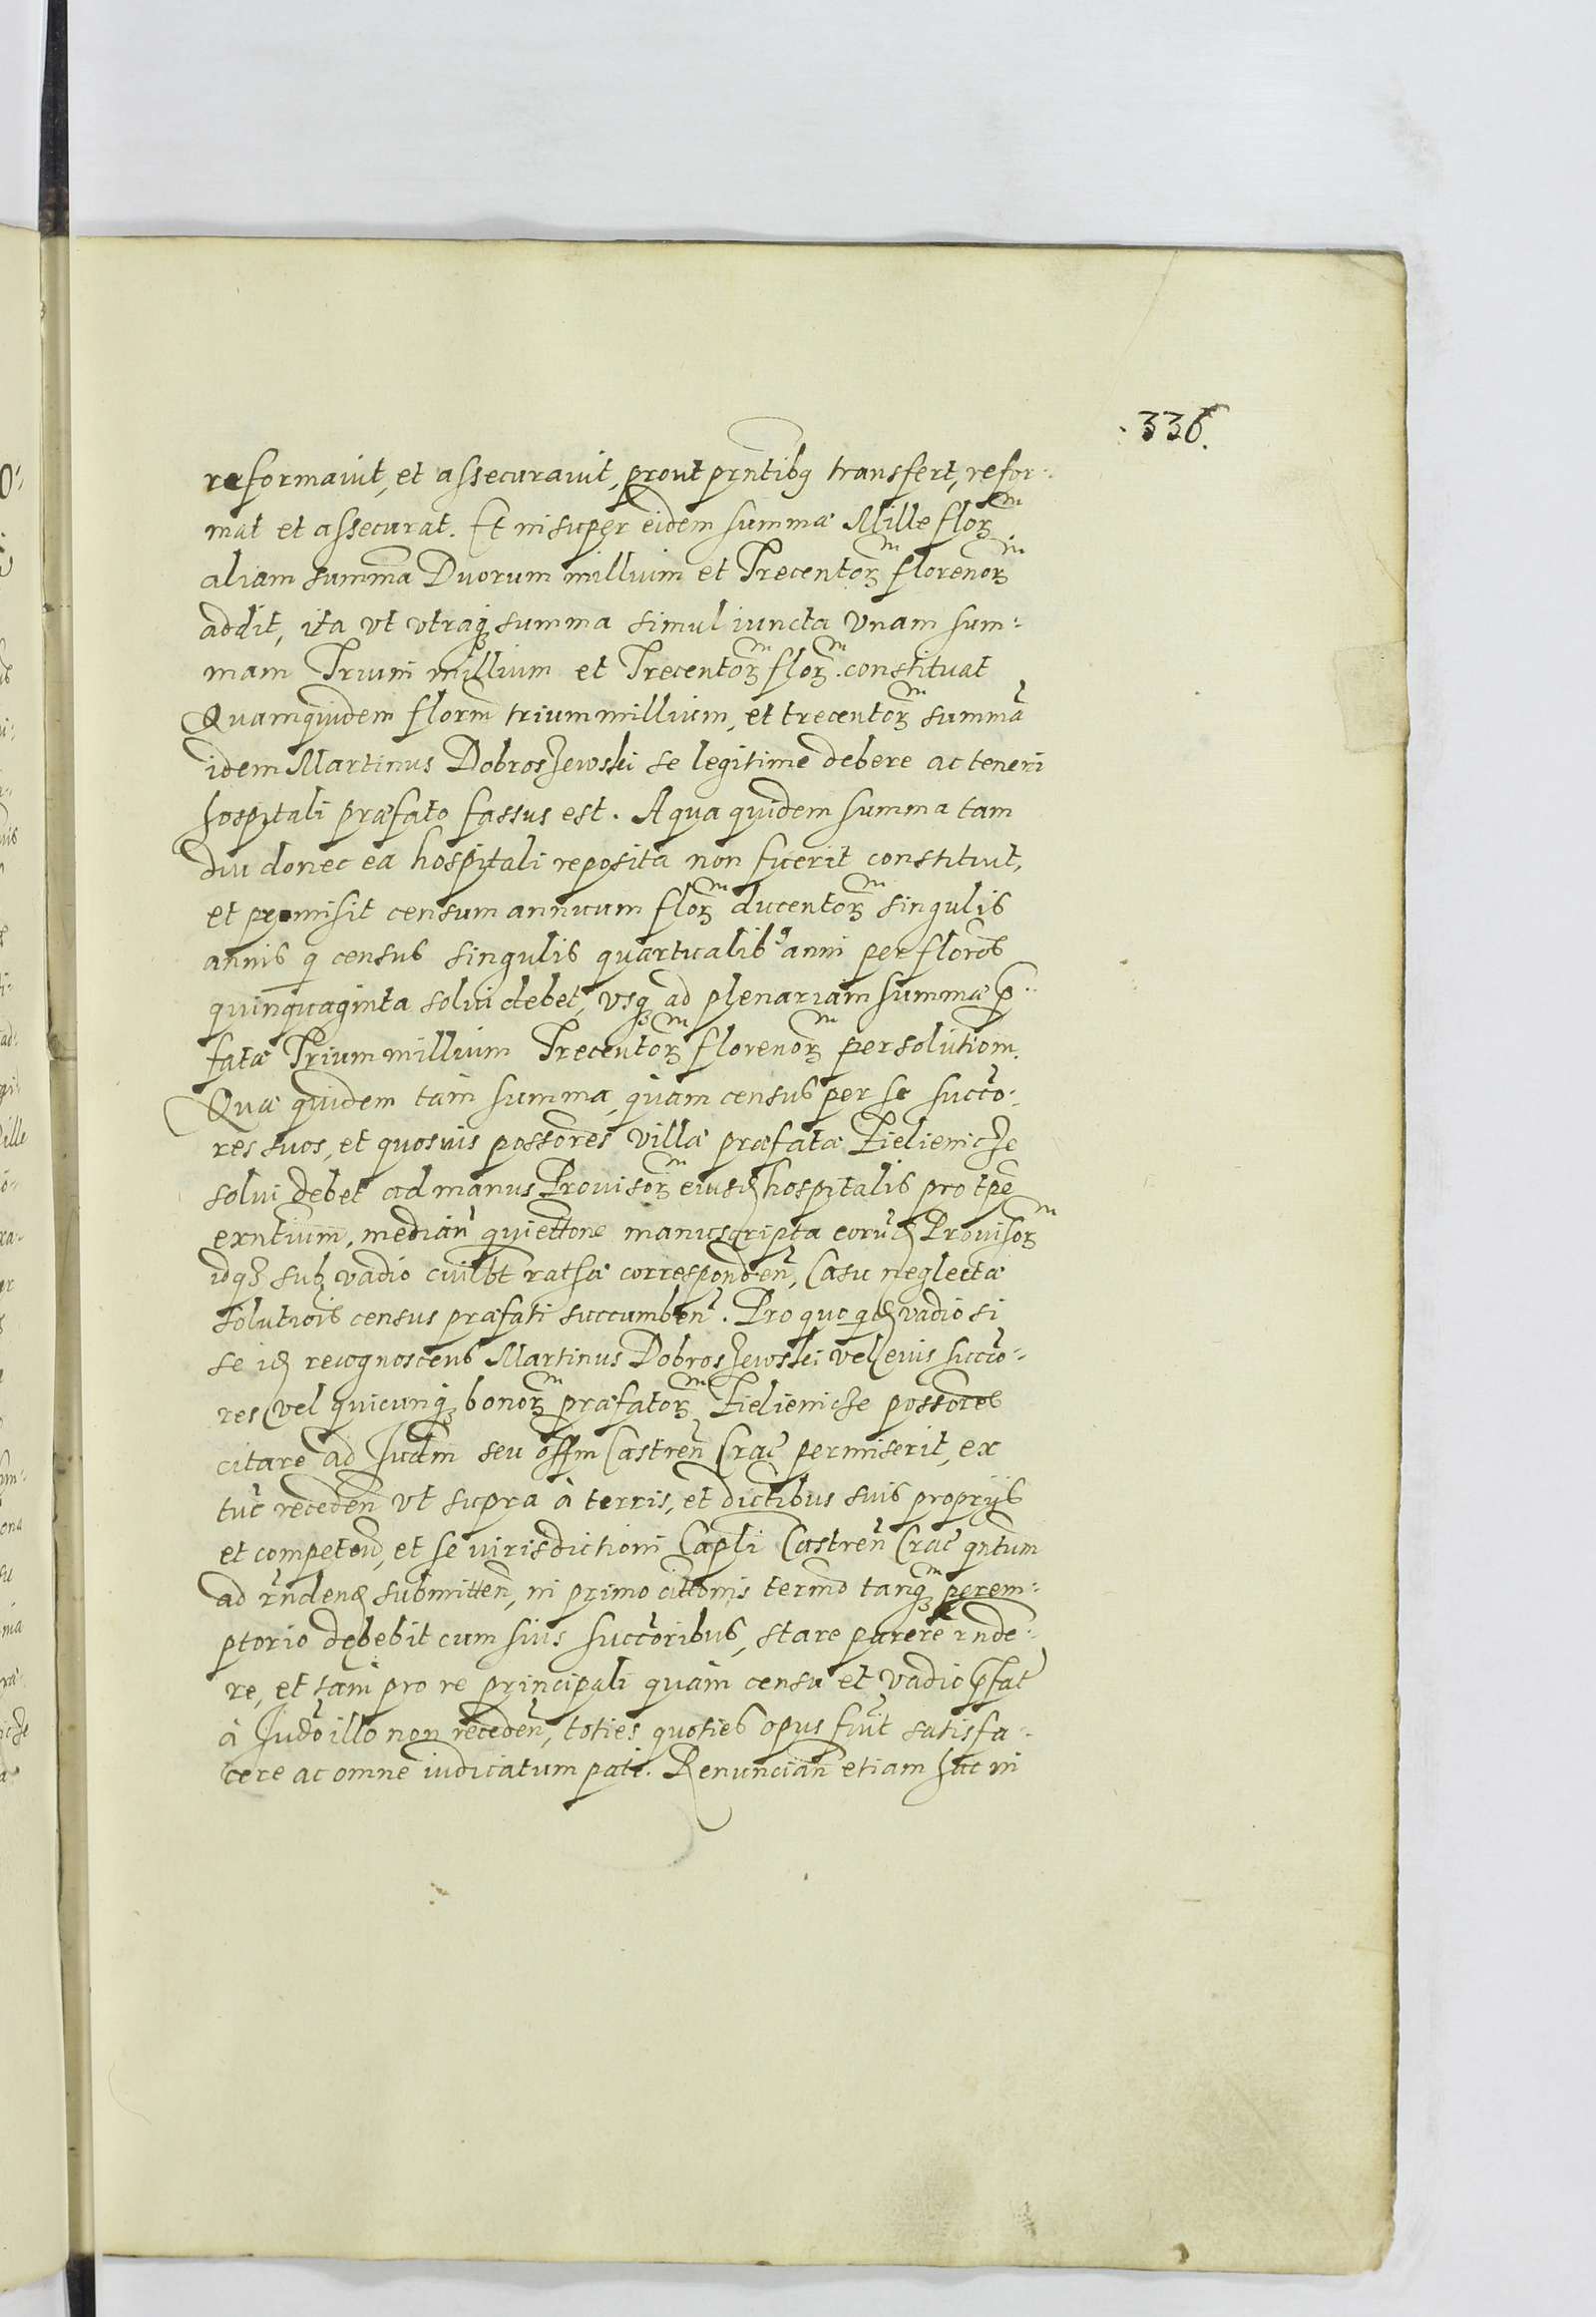 336.
reformauit, et assecurauit, prout pr̃ntibq transfert, refor:
mat et assecurat. Et insuper eidem summæ Mille florꝝ
aliam summã Duorum millium et Trecentorꝝ florenorꝝ
addit, ita vt vtraqꝫ summa simul iuncta vnam sum:
mam Trium millium et Trecentorꝝ florꝝ. constituat
Quamquidem florm̃ trium millium, et trecentorꝝ summã
idem Martinus Dobroszewski se legitime debere ac teneri
hospitali præfato fassus est. A qua quidem summa tam
diu donec ea hospitali reposita non fuerit constituit,
et promisit censum annuum florꝝ ducentorꝝ singulis
annis q census singulis quartualibꝰ anni per flor̃os
quinquaginta solui debet, vsqꝫ ad plenariam summæ p̃:
fatæ Trium millium Trecentorꝝ florenorꝝ persolutiom̃.
Quæ quidem tam summa, quam census per se succo͂:
res suos, et quosuis poss̃ores villæ præfatæ Zielienicze
solui debet ad manus Prouisorꝝ eiusd hospitalis pro tp̃e
exñtium, median̄ quiett̃one manuscripta eorũd Prouisorꝝ
idqꝫ sub vadio cuilb̃t ratsæ corresponden̄, Casu neglectæ
solutio͂is census præfati succumben̄. Pro quo qd vadio si
se id recognoscens Martinus Dobroszewski vel eius succo͂:
res vel quicunqꝫ bonorꝝ præfatorꝝ Zielienicze poss̃ores
citare ad Iud̃m seu off̃m Castren̄ Crac̃ permiserit, ex
tũc receden̄ vt supra à terris, et dict̃ibus suis proprijs
et competen̄, et se iurisdictioni Cap̃li Castren̄ Crac̃ qñtum
ad rñdend submitten̄, in primo citt̃onis term̃o tanqꝫ perem:
ptorio debebit cum suis succo͂ribus, stare parere rñde:
re, et tam pro re principali quam censu et vadio p̃fat̃
à Iud̃o illo non receden̄, toties quoties opus fũit satisfa:
cere ac omne iudicatum pati. Renuncian̄ etiam hac in